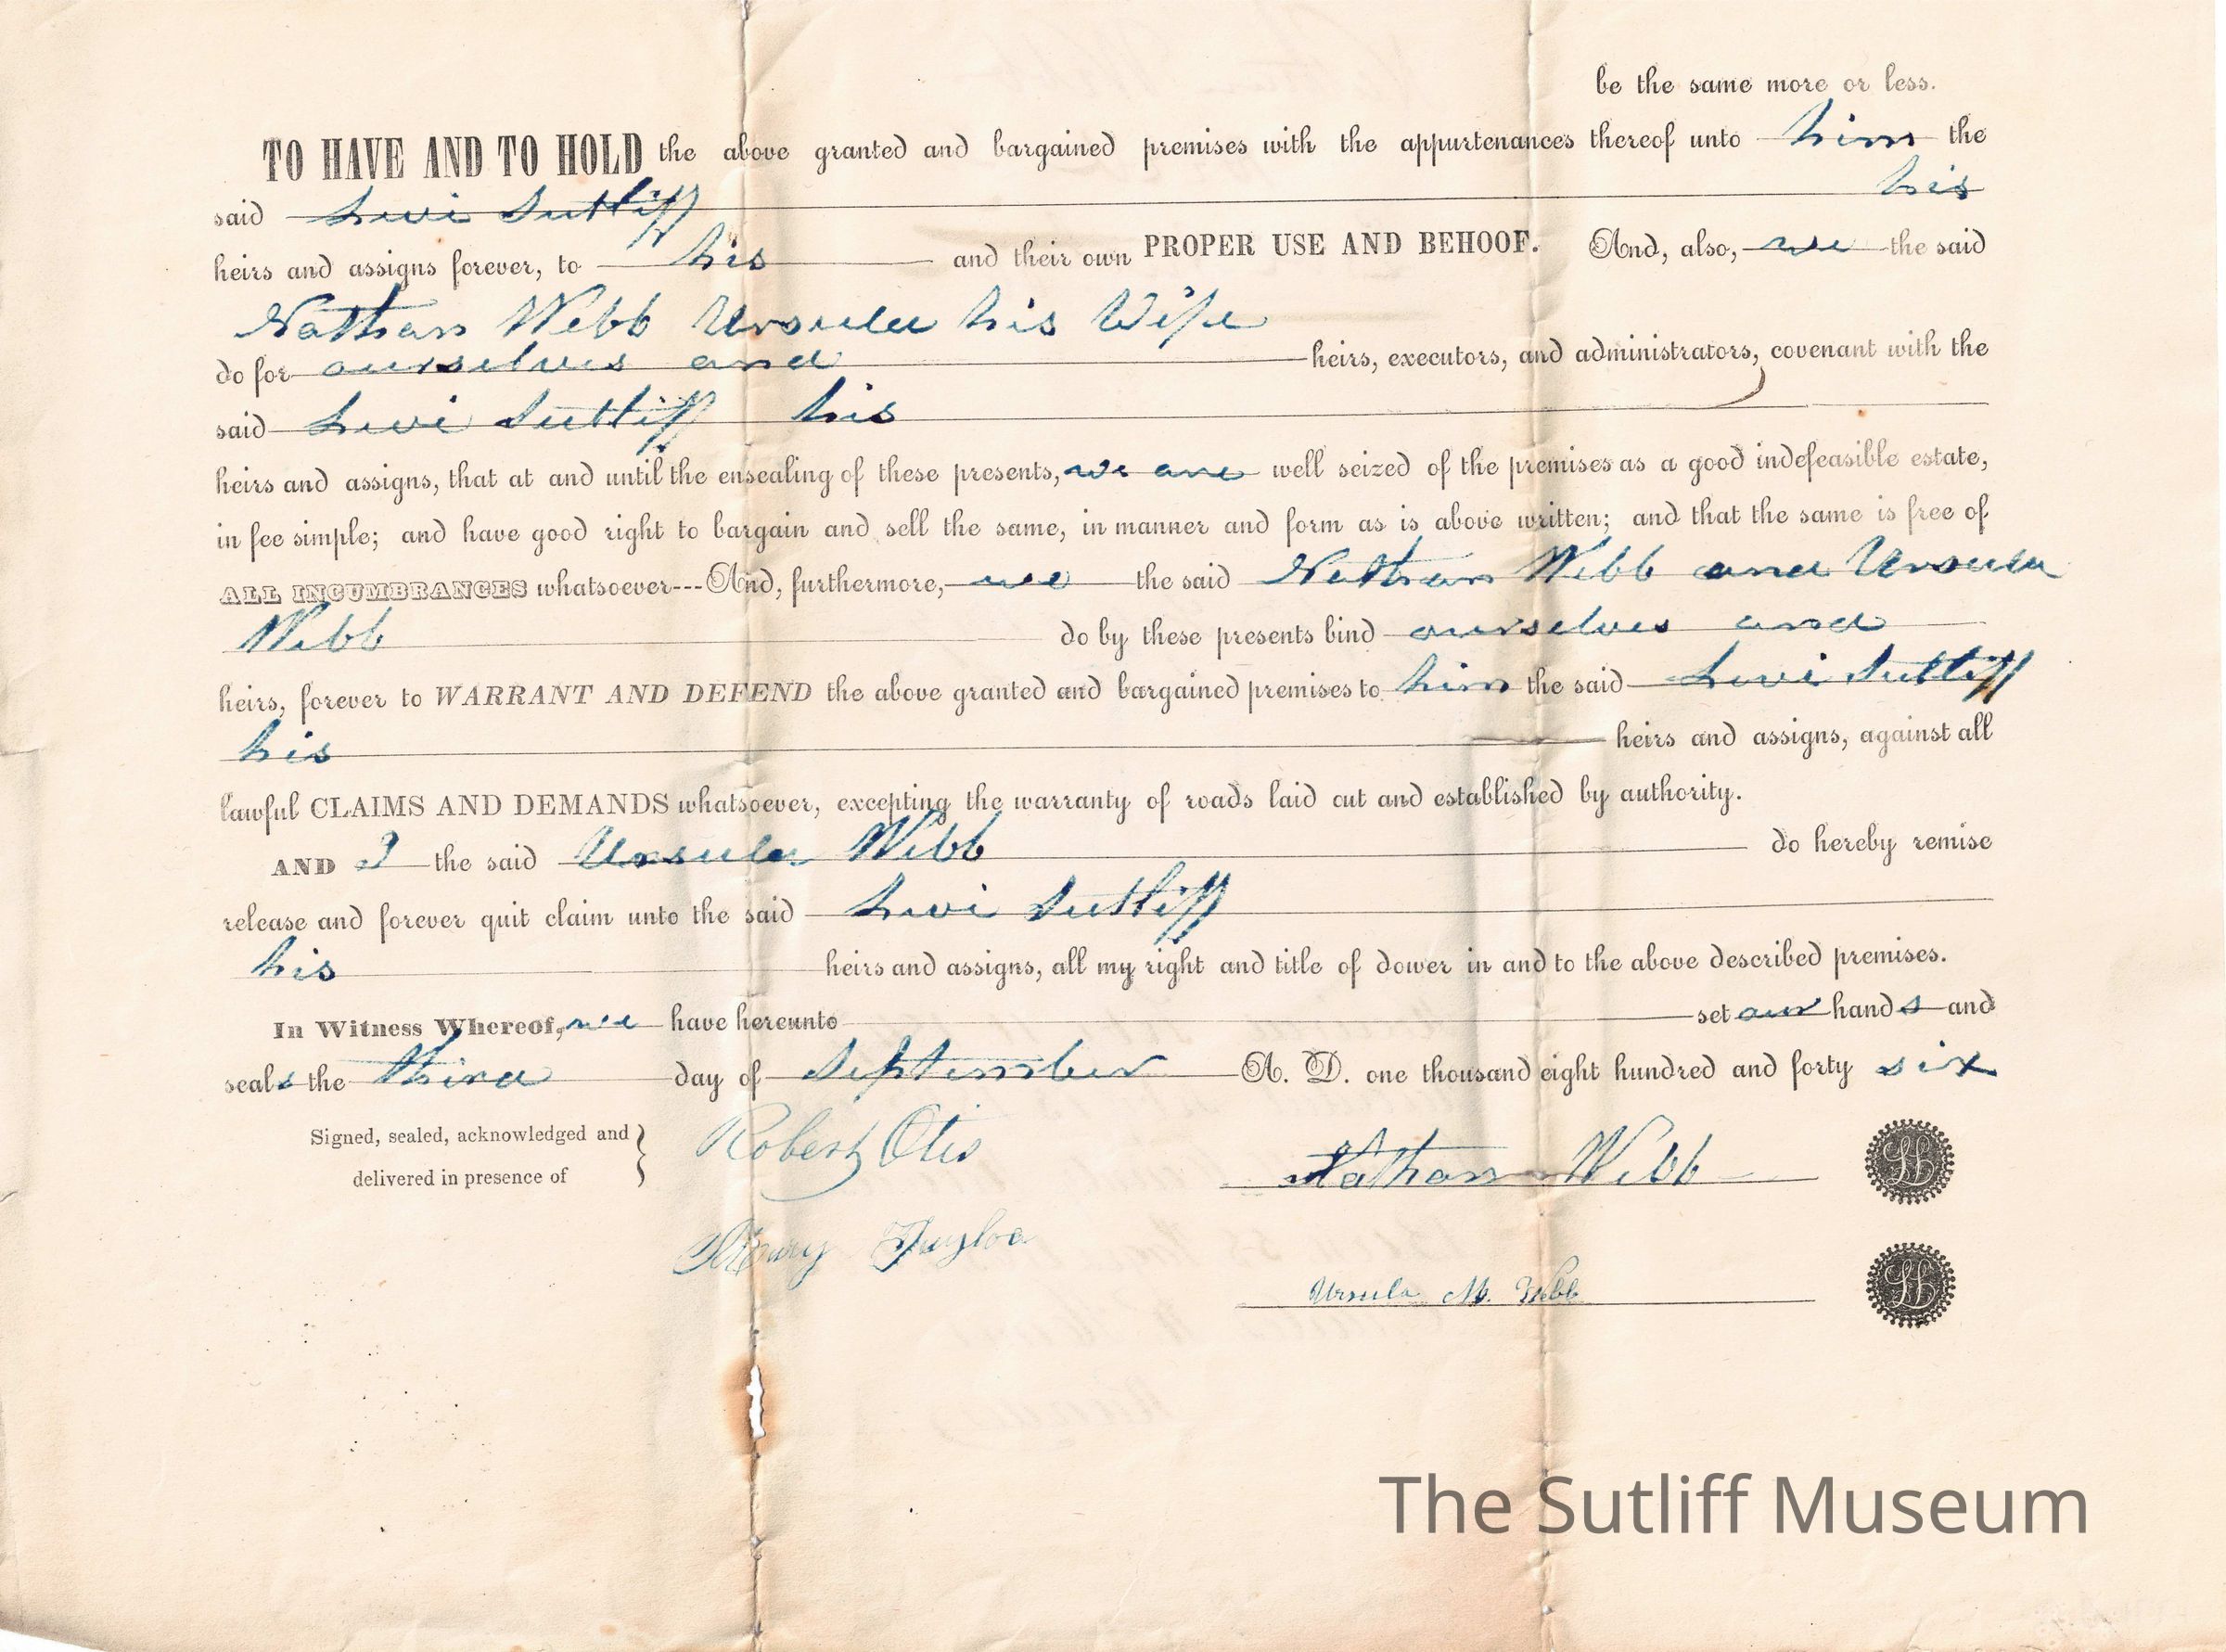 be the same more or less.
TO HAVE AND TO HOLD the above granted and bargained premises with the appurtenances thereof unto him the
said Levi Sutliff his
heirs and assigns forever, to his and their own PROPER USE AND BEHOOF. And, also, we the said
Nathan Webb Ursula his Wife
do for ourselves and heirs, executors, and administrators, covenant with the
said Levi Sutliff his
heirs and assigns, that at and until the ensealing of these presents, we are well seized of the premises as a good indefeasible estate,
in fee simple; and have good right to bargain and sell the same, in manner and form as is above written; and that the same is free of
ALL INCUMBRANCES whatsoever---And, furthermore, we the said Nathan Webb and Ursula
Webb do by these presents bind ourselves and
heirs, forever to WARRANT AND DEFEND the above granted and bargained premises to him the said Levi Sutliff
his heirs and assigns, against all
lawful CLAIMS AND DEMANDS whatsoever, excepting the warranty of roads laid out and established by authority.
AND I the said Ursula Webb do hereby remise
release and forever quit claim unto the said Levi Sutliff
his heirs and assigns, all my right and title of dower in and to the above described premises.
In Witness Whereof, we have hereunto set our hands and
seals the third day of September A. D. one thousand eight hundred and forty six
Signed, sealed, acknowledged and } Robert Otis Nathan Webb
delivered in presence of
Ursula M. Webb
The Sutliff Museum